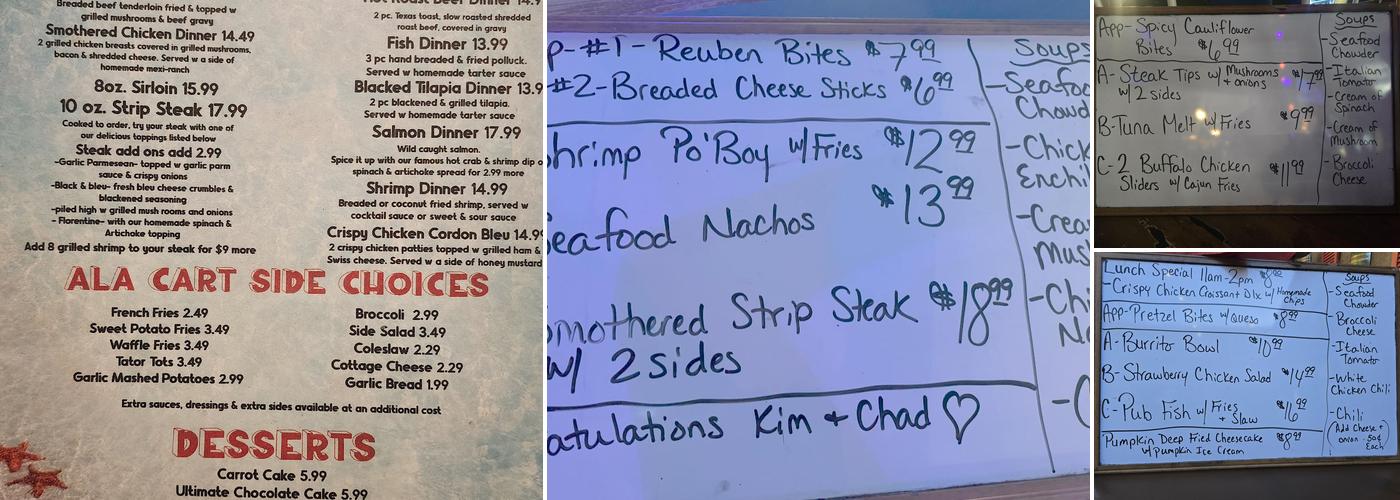 Breaded beef tenderloin fried & topped w
grilled mushrooms & beef gravy
Smothered Chicken Dinner 14.49
2 grilled chicken breasts covered in grilled mushrooms,
bacon & shredded cheese. Served w a side of
homemade mexi-ranch
8oz. Sirloin 15.99
10 oz. Strip Steak 17.99
Cooked to order, try your steak with one of
our delicious toppings listed below
Steak add ons add 2.99
-Garlic Parmesean- topped w garlic parm
sauce & crispy onions
-Black & bleu- fresh bleu cheese crumbles &
blackened seasoning
-piled high w grilled mush rooms and onions
- Florentine- with our homemade spinach &
Artichoke topping
Add 8 grilled shrimp to your steak for $9 more
Hot Roast Beef Dinner 14.9
2 pc. Texas toast, slow roasted shredded
roast beef, covered in gravy
Fish Dinner 13.99
3 pc hand breaded & fried polluck.
Served w homemade tarter sauce
Blacked Tilapia Dinner 13.9
2 pc blackened & grilled tilapia.
Served w homemade tarter sauce
Salmon Dinner 17.99
Wild caught salmon.
Spice it up with our famous hot crab & shrimp dip o
spinach & artichoke spread for 2.99 more
Shrimp Dinner 14.99
Breaded or coconut fried shrimp, served w
cocktail sauce or sweet & sour sauce
Crispy Chicken Cordon Bleu 14.9
2 crispy chicken patties topped w grilled ham &
Swiss cheese. Served w a side of honey mustard
ALA CART SIDE CHOICES
French Fries 2.49
Sweet Potato Fries 3.49
Waffle Fries 3.49
Tator Tots 3.49
Garlic Mashed Potatoes 2.99
Broccoli 2.99
Side Salad 3.49
Coleslaw 2.29
Cottage Cheese 2.29
Garlic Bread 1.99
Extra sauces, dressings & extra sides available at an additional cost
DESSERTS
Carrot Cake 5.99
Ultimate Chocolate Cake 5.99
p-#1- Reuben Bites $7.99
#2-Breaded Cheese Sticks $6.99
hrimp Po'Boy w/Fries $12.99
eafood Nachos $13.99
mothered Strip Steak $18.99
w/ 2 sides
atulations Kim + Chad ♡
Soups
-Seafoo
Chowd
-Chick
Enchil
-Crea
Mus
-Chi
No
App- Spicy Cauliflower
Bites $6.99
A-Steak Tips w/ Mushrooms + onions $17.99
w/ 2 sides
B-Tuna Melt w/ Fries $9.99
C-2 Buffalo Chicken $11.99
Sliders w/ Cajun Fries
Soups
-Seafood
Chowder
-Italian
Tomato
-Cream of
Spinach
-Cream of
Mushroom
-Broccoli
Cheese
Lunch Special 11am-2pm $8.00
-Crispy Chicken Croissant Dlx w/ Homemade Chips
App-Pretzel Bites w/ Queso $8.99
A-Burrito Bowl $10.99
B-Strawberry Chicken Salad $14.99
C-Pub Fish w/ Fries + Slaw $16.99
Pumpkin Deep Fried Cheesecake $8.99
w/ Pumpkin Ice Cream
Soups
-Seafood
Chowder
-Broccoli
Cheese
-Italian
Tomato
-White
Chicken Chili
-Chili
(Add Cheese +
onion .50¢
Each)